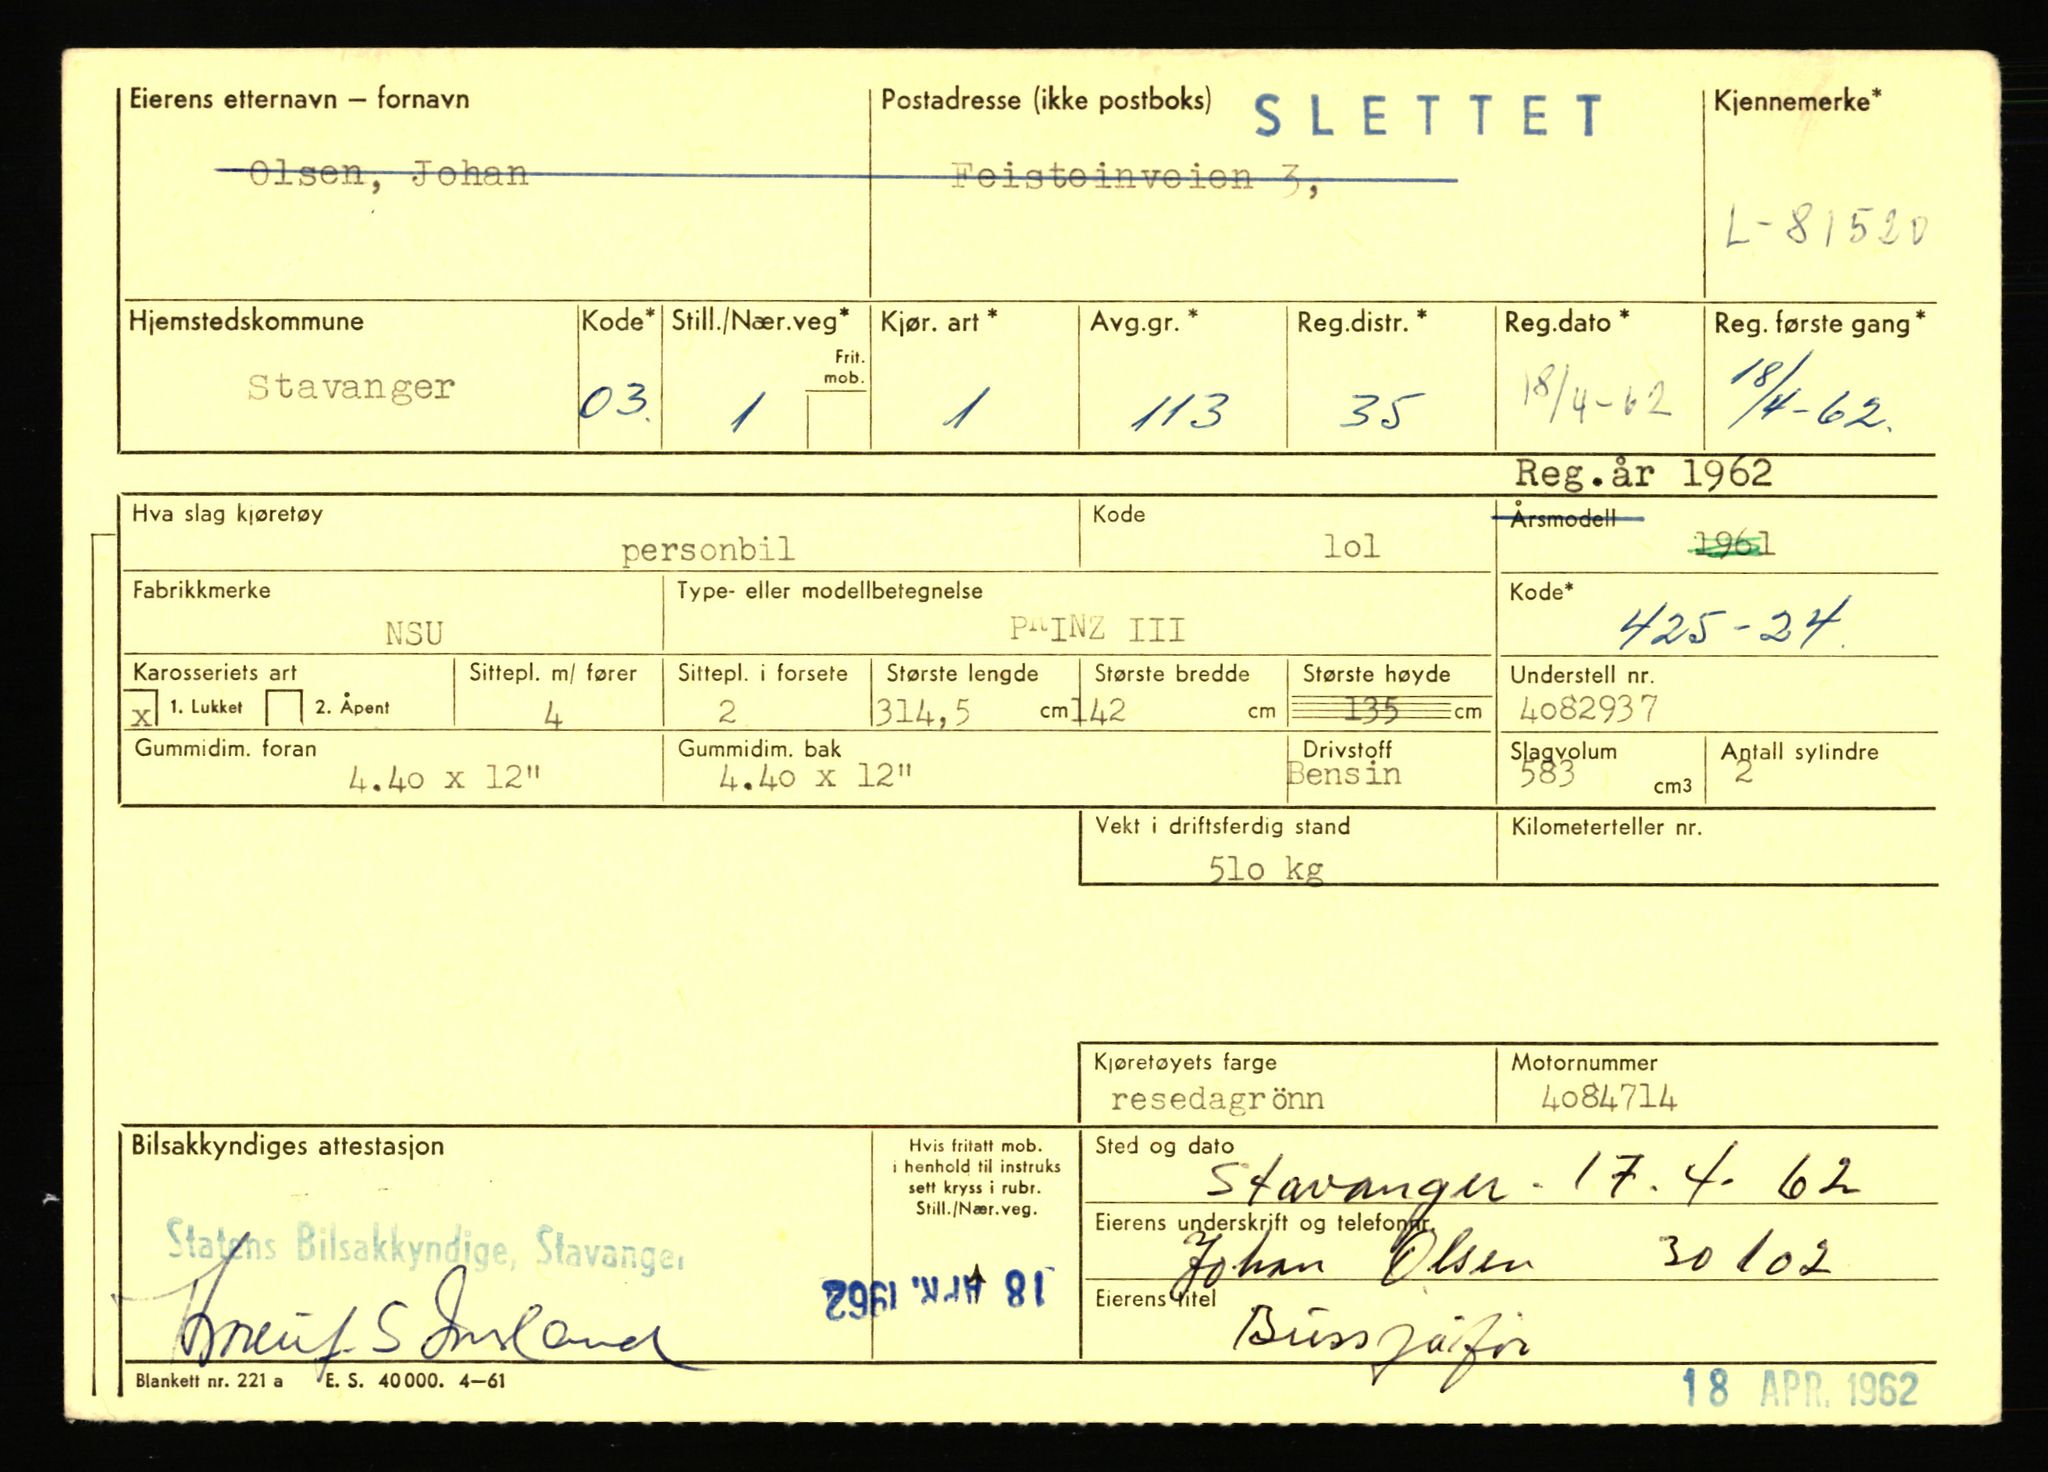 Eierens etternavn – fornavn
Postadresse (ikke postboks)
SLETTET
Kjennemerke*
Olsen, Johan
Feisteinveien 3,
L-81520
Hjemstedskommune
Kode*
Still./Nær.veg*
Frit. mob.
Kjør. art *
Avg.gr. *
Reg.distr. *
Reg.dato *
Reg. første gang *
Stavanger
03.
1
1
113
35
18/4-62
18/4-62.
Reg.år 1962
Hva slag kjøretøy
Kode
Årsmodell
personbil
lol
1961
Fabrikkmerke
Type- eller modellbetegnelse
Kode*
NSU
PRINZ III
425-24.
Karosseriets art
Sittepl. m/ fører
Sittepl. i forsete
Største lengde
Største bredde
Største høyde
Understell nr.
x 1. Lukket
2. Åpent
4
2
314,5 cm
142 cm
135 cm
4o82937
Gummidim. foran
Gummidim. bak
Drivstoff
Slagvolum
Antall sylindre
4.4o x 12"
4.4o x 12"
Bensin
583 cm3
2
Vekt i driftsferdig stand
Kilometerteller nr.
51o kg
Kjøretøyets farge
Motornummer
resedagrönn
4o84714
Bilsakkyndiges attestasjon
Hvis fritatt mob.
i henhold til instruks
sett kryss i rubr.
Still./Nær.veg.
Sted og dato
Stavanger. 17.4. 62
Statens Bilsakkyndige, Stavanger
18 APR. 1962
Eierens underskrift og telefonnr.
Johan Olsen 30102
Eierens titel
Blankett nr. 221 a E. S. 40000. 4–61
18 APR. 1962